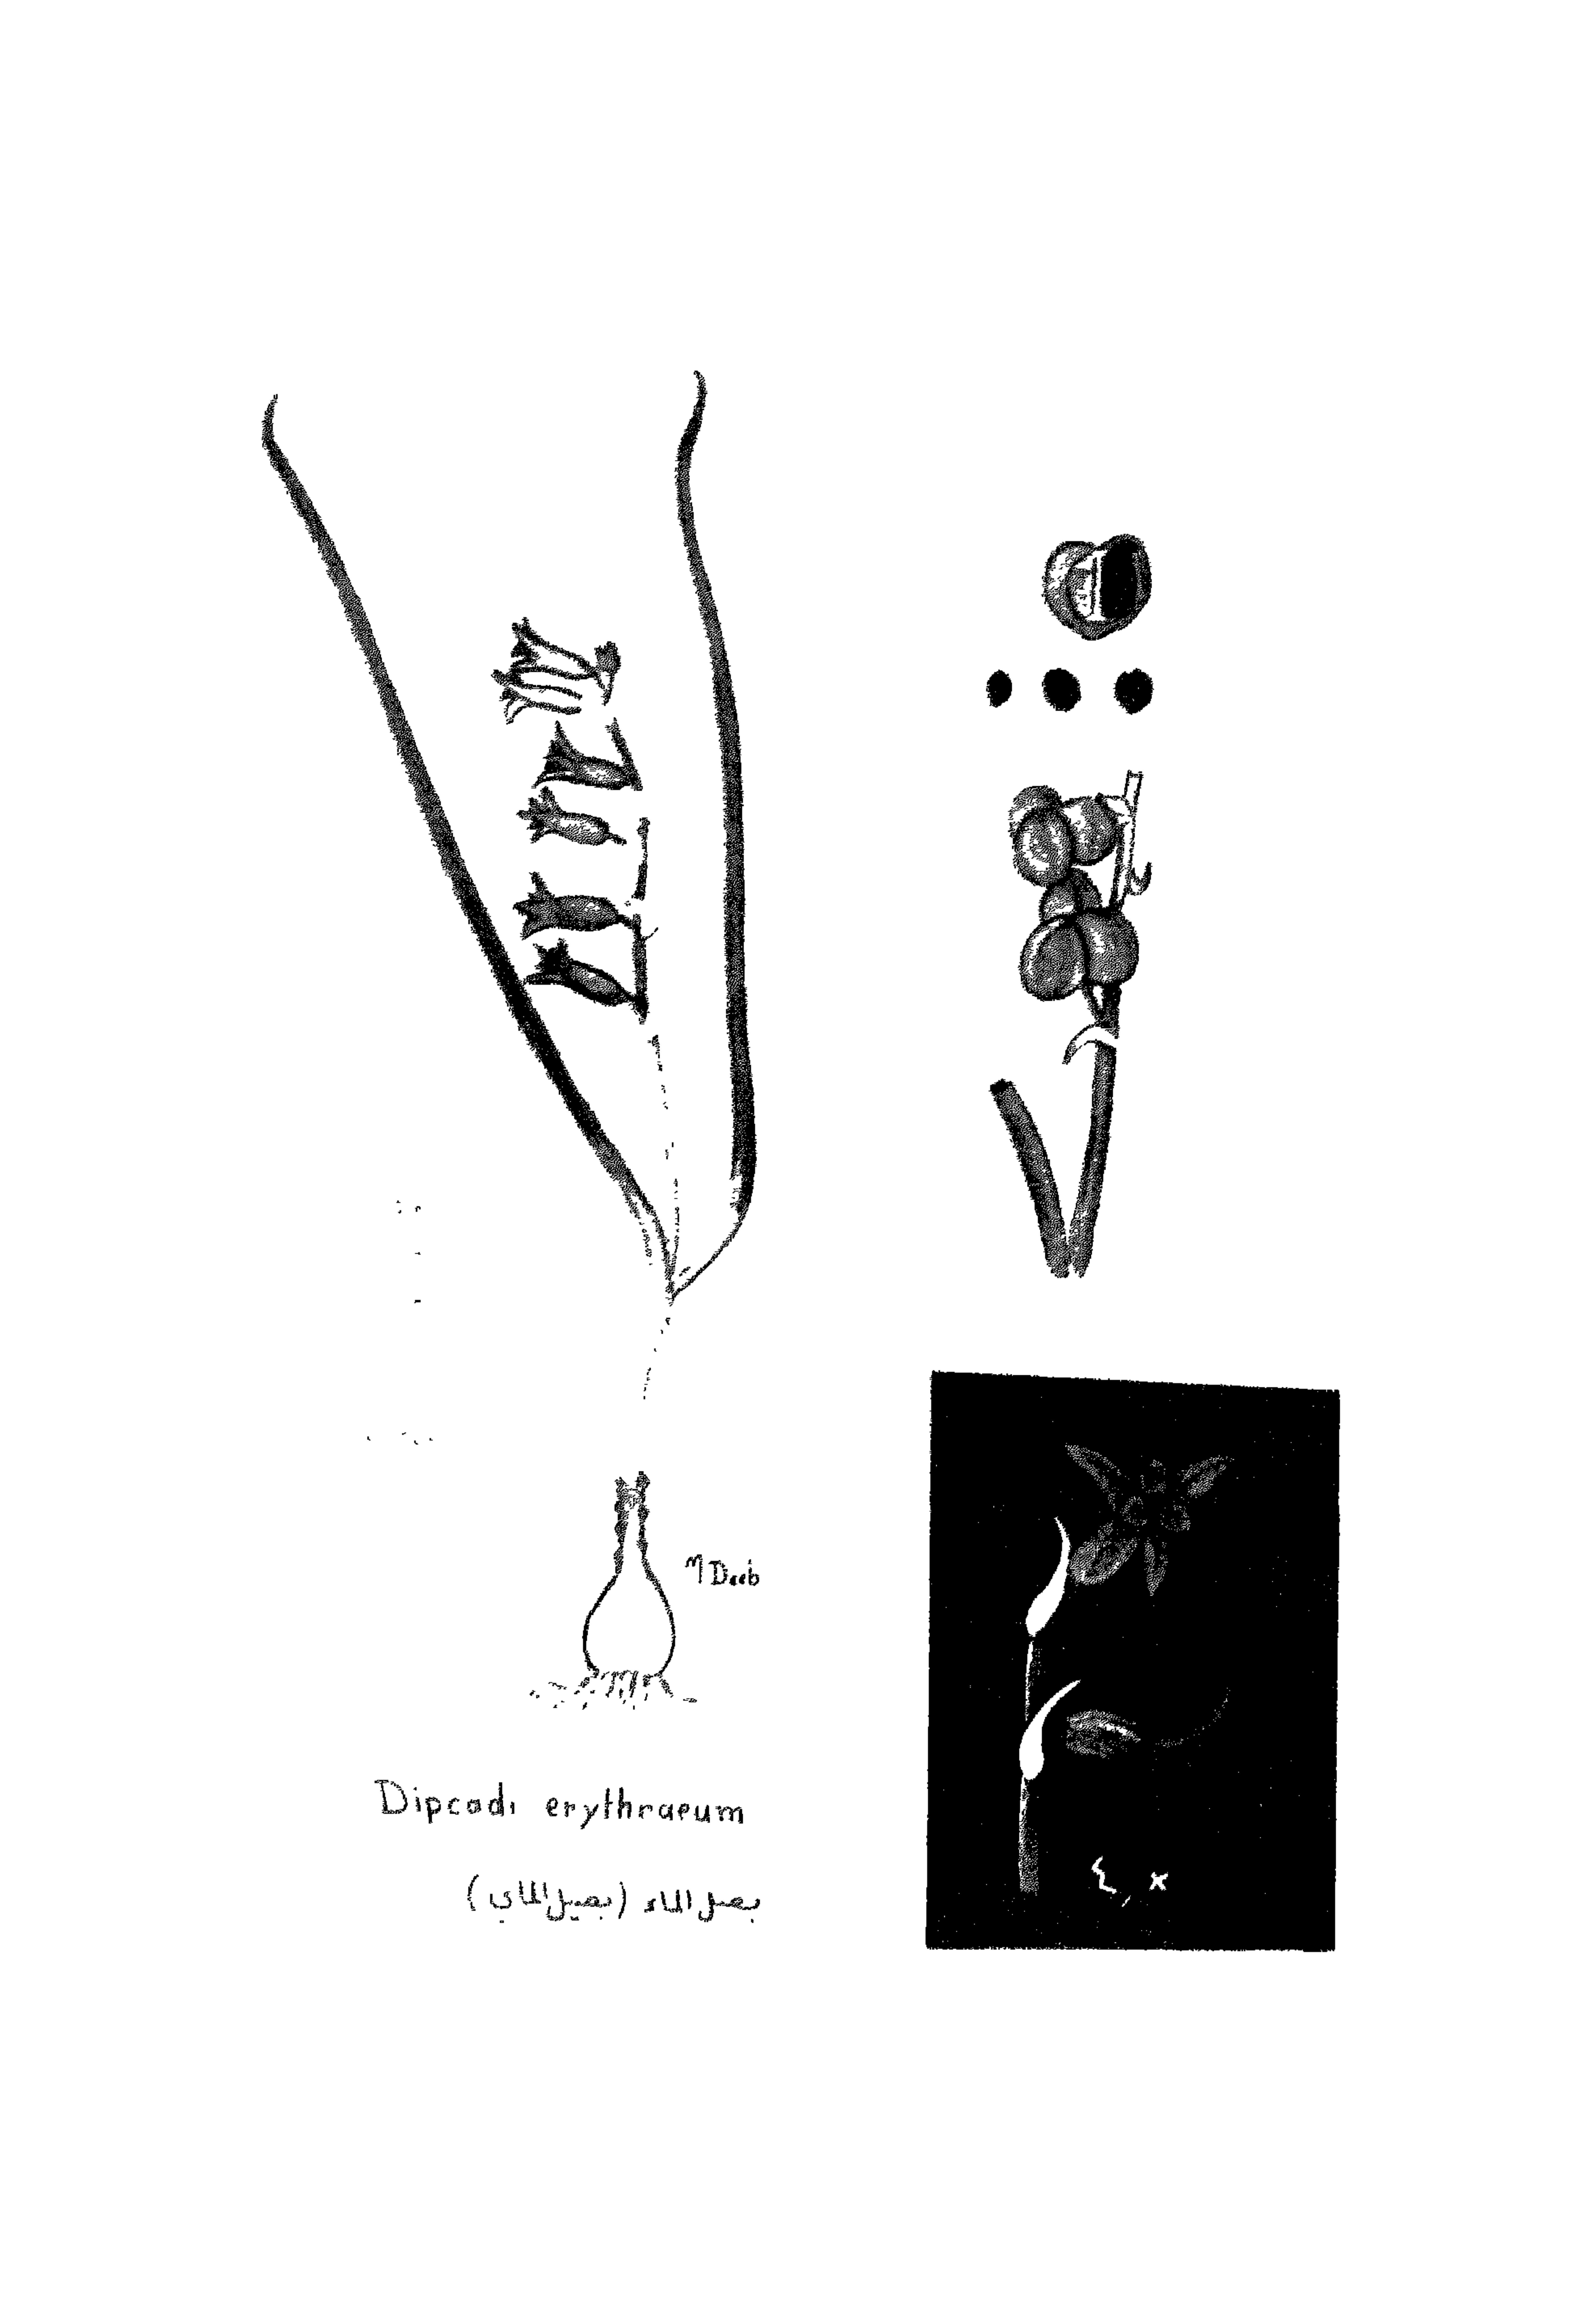 M Deeb
Dipcadi erythraeum
بصل الماء (بصيل الماي)